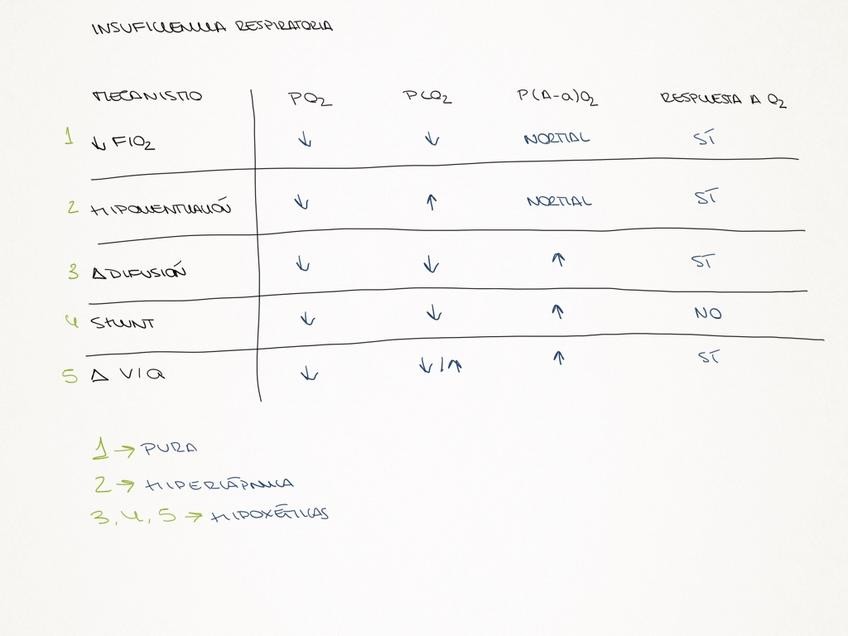 INSUFICIENCIA RESPIRATORIA
MECANISMO PO2 PCO2 P(A-a)O2 RESPUESTA A O2
1 ↓ FIO2 ↓ ↓ NORMAL SÍ
2 HIPOVENTILACIÓN ↓ ↑ NORMAL SÍ
3 Δ DIFUSIÓN ↓ ↓ ↑ SÍ
4 SHUNT ↓ ↓ ↑ NO
5 Δ V/Q ↓ ↓/↑ ↑ SÍ
1 → PURA
2 → HIPERCÁPNICA
3, 4, 5 → HIPOXÉMICAS